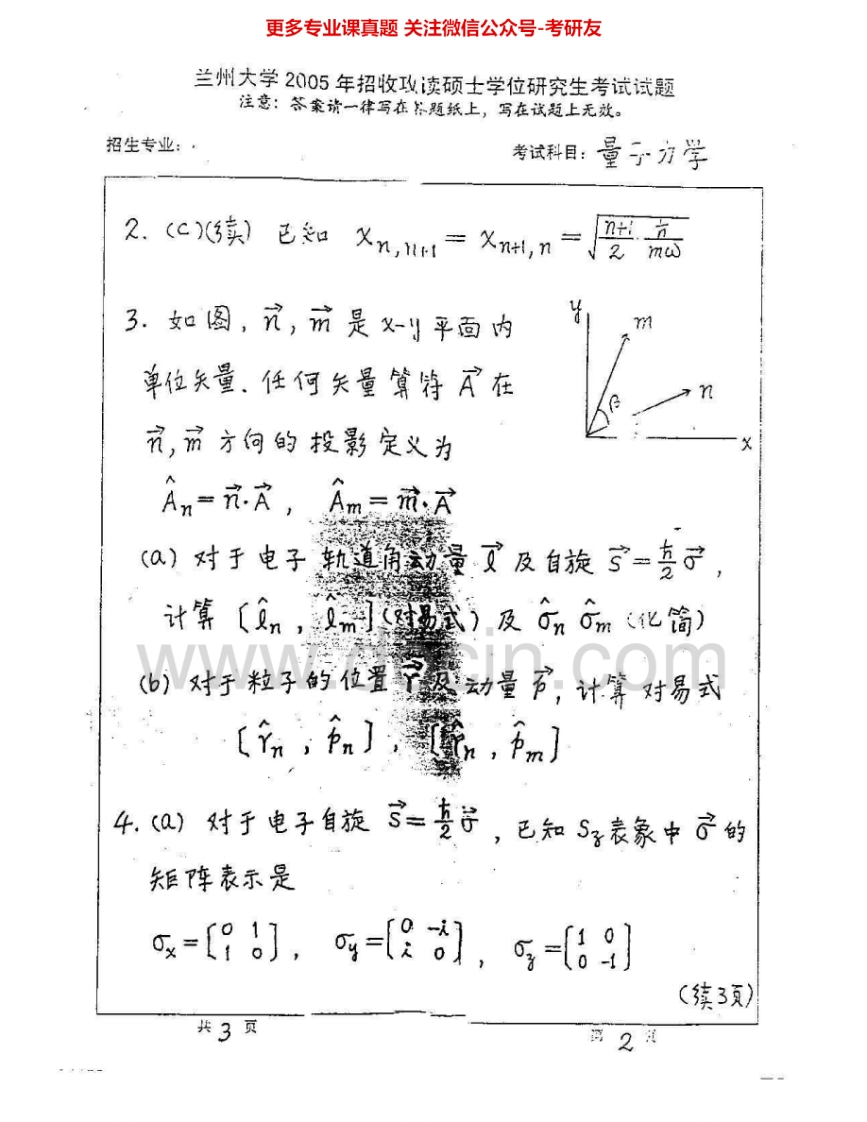 更多专业课真题 关注微信公众号-考研友
兰州大学 2005 年招收攻读硕士学位研究生考试试题
注意：答案请一律写在答题纸上，写在试题上无效。
招生专业：
考试科目：量子力学
2. (c)(续) 已知 x_{n,n+1} = x_{n+1,n} = √(n+1/2 ħ/mω)
3. 如图，n⃗，m⃗ 是 x-y 平面内
单位矢量．任何矢量算符 A⃗ 在
n⃗，m⃗ 方向的投影定义为
Â_n = n⃗·A⃗， Â_m = m⃗·A⃗
y
m
n
β
x
(a) 对于电子轨道角动量 l⃗ 及自旋 s⃗ = ħ/2 σ⃗，
计算 [l̂_n，l̂_m]（对易式）及 σ̂_n σ̂_m（化简）
www.docin.com
(b) 对于粒子的位置 r⃗ 及动量 p⃗，计算对易式
[r̂_n，p̂_n]，[r̂_n，p̂_m]
4. (a) 对于电子自旋 s⃗ = ħ/2 σ⃗，已知 S_z 表象中 σ⃗ 的
矩阵表示是
σ_x = [0 1; 1 0]， σ_y = [0 -i; i 0]， σ_z = [1 0; 0 -1]
（续3页）
共 3 页
第 2 页